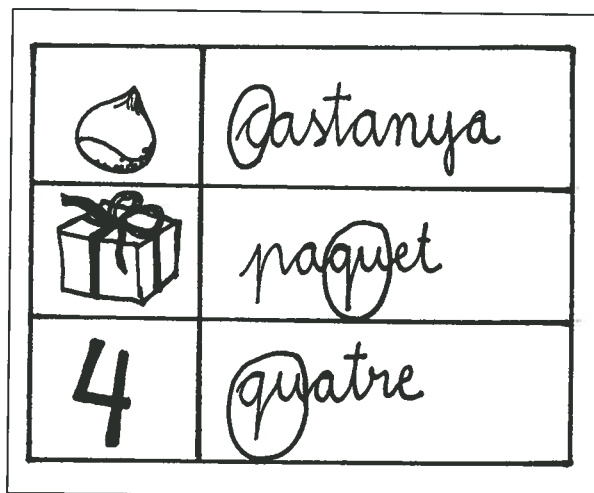 castanya
paquet
4 quatre